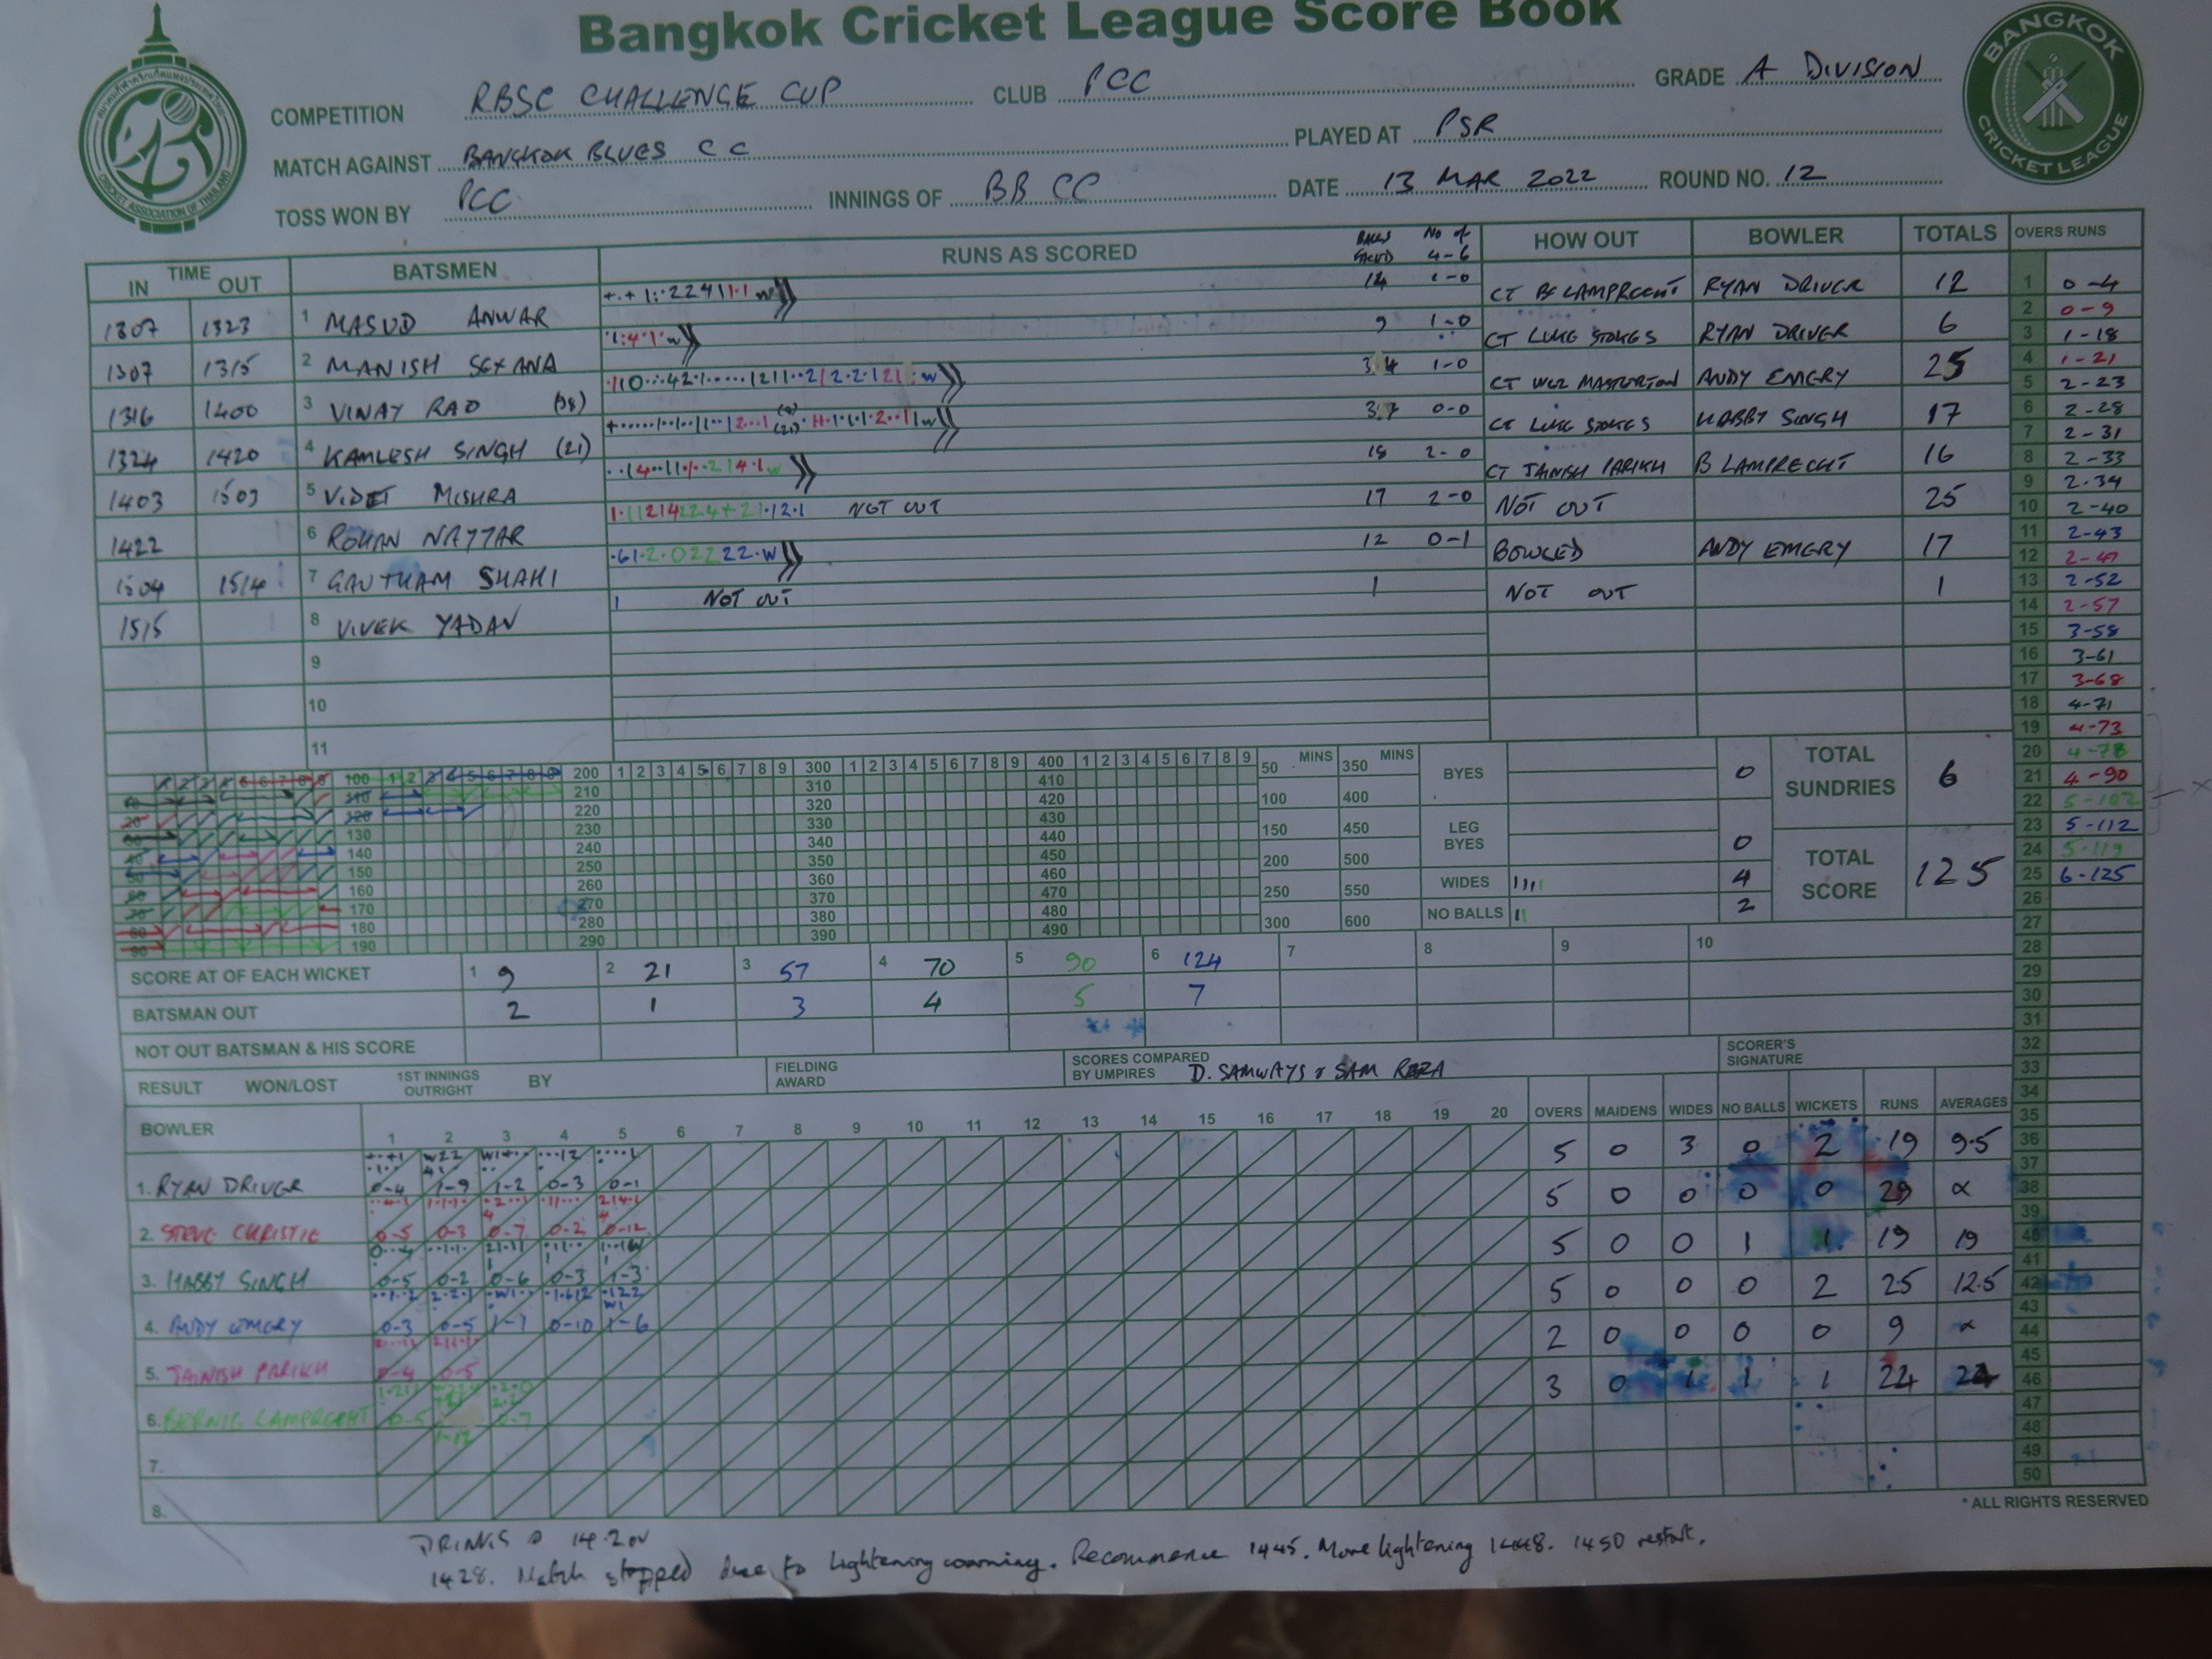 Bangkok Cricket League Score Book
COMPETITION RBSC CHALLENGE CUP CLUB PCC GRADE A DIVISION
MATCH AGAINST BANGKOK BLUES CC PLAYED AT PSR
TOSS WON BY PCC INNINGS OF BB CC DATE 13 MAR 2022 ROUND NO. 12
BANGKOK CRICKET LEAGUE
CRICKET ASSOCIATION OF THAILAND
TIME IN OUT BATSMEN RUNS AS SCORED BALLS No of 4-6 HOW OUT BOWLER TOTALS OVERS RUNS
1307 1323 1 MASUD ANWAR 14 1-0 CT B LAMPRECHT RYAN DRIVER 12
1307 1315 2 MANISH SEXANA 9 1-0 CT LUKE STOKES RYAN DRIVER 6
1316 1400 3 VINAY RAO 34 1-0 CT WK2 MASTERTON ANDY EMERY 25
1324 1420 4 KAMLESH SINGH (21) 37 0-0 CT LUKE STOKES HABBY SINGH 17
1403 1503 5 VIDET MISHRA 18 2-0 CT TAINISH PARIKH B LAMPRECHT 16
1422 6 ROHAN NAYYAR NOT OUT 17 2-0 NOT OUT 25
1504 1514 7 GAUTHAM SHAHI 12 0-1 BOWLED ANDY EMERY 17
1515 8 VIVEK YADAV 1 NOT OUT 1 NOT OUT 1
9
10
11
1 0-4
2 0-9
3 1-18
4 1-21
5 2-23
6 2-28
7 2-31
8 2-33
9 2-34
10 2-40
11 2-43
12 2-47
13 2-52
14 2-57
15 3-58
16 3-61
17 3-68
18 4-71
19 4-73
20 4-78
21 4-90
22 5-102
23 5-112
24 5-119
25 6-125
26
27
28
29
30
31
32
33
34
35
36
37
38
39
40
41
42
43
44
45
46
47
48
49
50
100 1 2 3 4 5 6 7 8 9 200 1 2 3 4 5 6 7 8 9 300 1 2 3 4 5 6 7 8 9 400 1 2 3 4 5 6 7 8 9
110 210 310 410
120 220 320 420
130 230 330 430
140 240 340 440
150 250 350 450
160 260 360 460
170 270 370 470
180 280 380 480
190 290 390 490
50 MINS 350 MINS
100 400
150 450
200 500
250 550
300 600
BYES 0
LEG BYES 0
WIDES 4
NO BALLS 2
TOTAL SUNDRIES 6
TOTAL SCORE 125
SCORE AT OF EACH WICKET 1 9 2 21 3 57 4 70 5 90 6 124 7 8 9 10
BATSMAN OUT 2 1 3 4 5 7
NOT OUT BATSMAN & HIS SCORE
RESULT WON/LOST 1ST INNINGS OUTRIGHT BY FIELDING AWARD SCORES COMPARED BY UMPIRES D. SAMWAYS & SAM REZA SCORER'S SIGNATURE
BOWLER 1 2 3 4 5 6 7 8 9 10 11 12 13 14 15 16 17 18 19 20 OVERS MAIDENS WIDES NO BALLS WICKETS RUNS AVERAGES
1. RYAN DRIVER 0-4 1-9 1-2 0-3 0-1 5 0 3 0 2 19 9.5
2. STEVE CHRISTIE 0-5 0-3 0-7 0-2 0-12 5 0 0 0 0 29 α
3. HABBY SINGH 0-5 0-2 0-6 0-3 1-3 5 0 0 1 1 19 19
4. ANDY EMERY 0-3 0-5 1-1 0-10 1-6 5 0 0 0 2 25 12.5
5. TAINISH PARIKH 0-4 0-5 2 0 0 0 0 9 α
6. BERNIE LAMPRECHT 0-5 1-12 0-7 3 0 1 1 1 24 24
7.
8.
* ALL RIGHTS RESERVED
DRINKS @ 14.2 ov
1428. Match stopped due to lightening warning. Recommence 1445. More lightening 1448. 1450 restart.